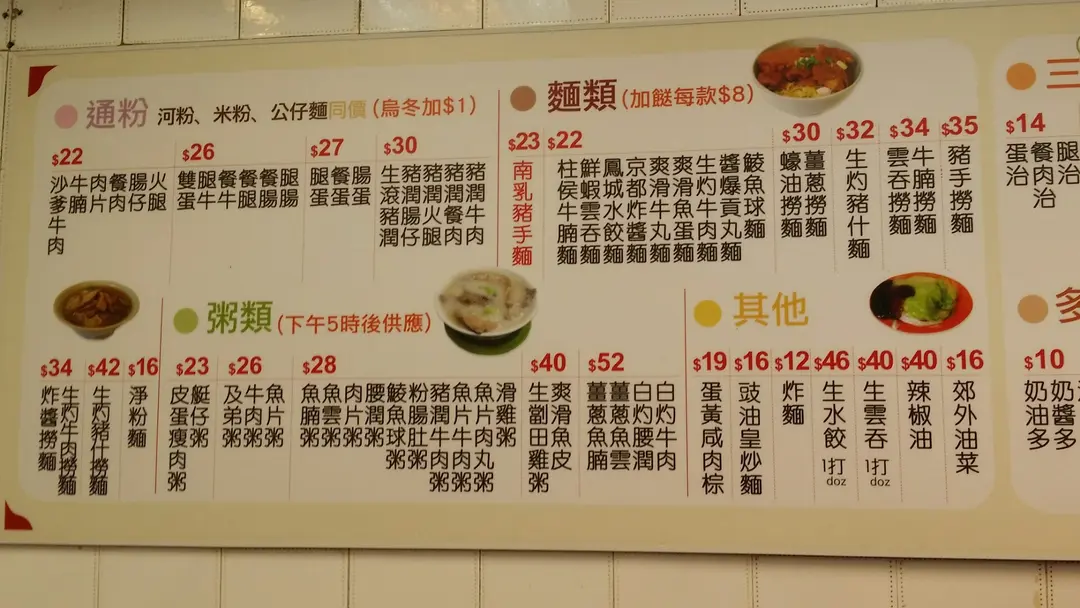 通粉 河粉、米粉、公仔麵同價 (烏冬加$1)
$22
沙爹牛肉
牛腩
肉片
餐肉
腸仔
火腿
$26
雙蛋
腿牛
餐牛
餐腿
餐腸
腿腸
$27
腿蛋
餐蛋
腸蛋
$30
生滾豬潤
豬潤腸仔
豬潤火腿
豬潤餐肉
豬潤牛肉
麵類 (加餸每款$8)
$23
南乳豬手麵
$22
柱侯牛腩麵
鮮蝦雲吞麵
鳳城水餃麵
京都炸醬麵
爽滑牛丸麵
爽滑魚蛋麵
生灼牛肉麵
醬爆貢丸麵
鯪魚球麵
$30
蠔油撈麵
薑蔥撈麵
$32
生灼豬什麵
$34
雲吞撈麵
牛腩撈麵
$35
豬手撈麵
三
$14
蛋治
餐肉治
腿
$34
炸醬撈麵
生灼牛肉撈麵
$42
生灼豬什撈麵
$16
淨粉麵
粥類 (下午5時後供應)
$23
皮蛋瘦肉粥
艇仔粥
$26
及弟粥
牛肉粥
魚片粥
$28
魚腩粥
魚雲粥
肉片粥
腰潤粥
鯪魚球粥
粉腸肚粥
豬潤牛肉粥
魚片牛肉粥
魚片肉丸粥
滑雞粥
$40
生劏田雞粥
爽滑魚皮
$52
薑蔥魚腩
薑蔥魚雲
白灼腰潤
白灼牛肉
其他
$19
蛋黃咸肉棕
$16
豉油皇炒麵
$12
炸麵
$46
生水餃 1打 doz
$40
生雲吞 1打 doz
$40
辣椒油
$16
郊外油菜
多
$10
奶油多
奶醬多